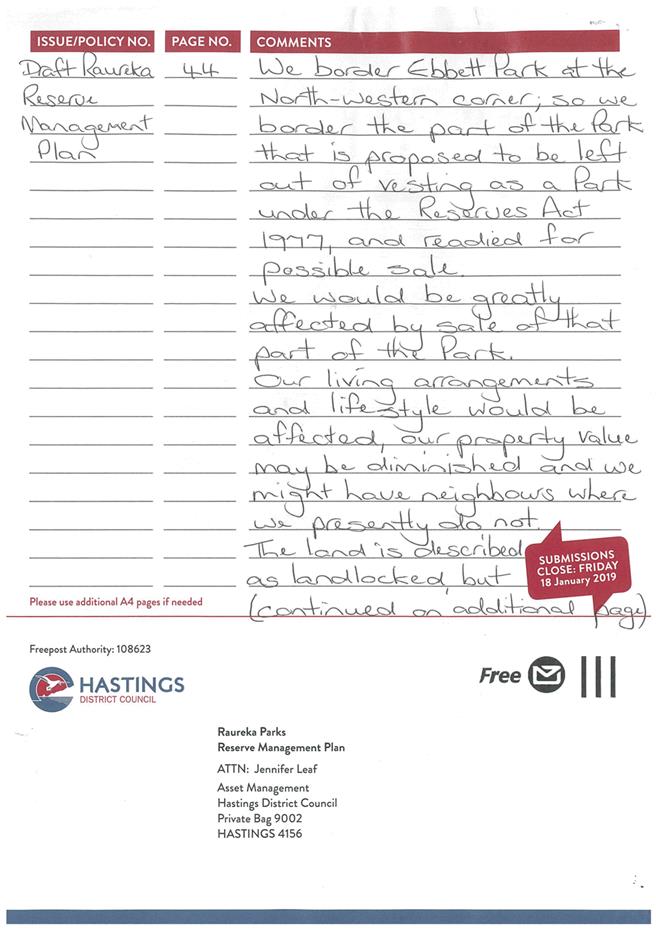 ISSUE/POLICY NO. PAGE NO. COMMENTS
Draft Raureka 44 We border Ebbett Park at the
Reserve North-western corner; so we
Management border the part of the Park
Plan that is proposed to be left
out of vesting as a Park
under the Reserves Act
1977, and readied for
possible sale.
We would be greatly
affected by sale of that
part of the Park.
Our living arrangements
and lifestyle would be
affected, our property value
may be diminished and we
might have neighbours where
we presently do not.
The land is described
as landlocked, but
(continued on additional page)
SUBMISSIONS
CLOSE: FRIDAY
18 January 2019
Please use additional A4 pages if needed
Freepost Authority: 108623
HASTINGS
DISTRICT COUNCIL
Free
Raureka Parks
Reserve Management Plan
ATTN: Jennifer Leaf
Asset Management
Hastings District Council
Private Bag 9002
HASTINGS 4156